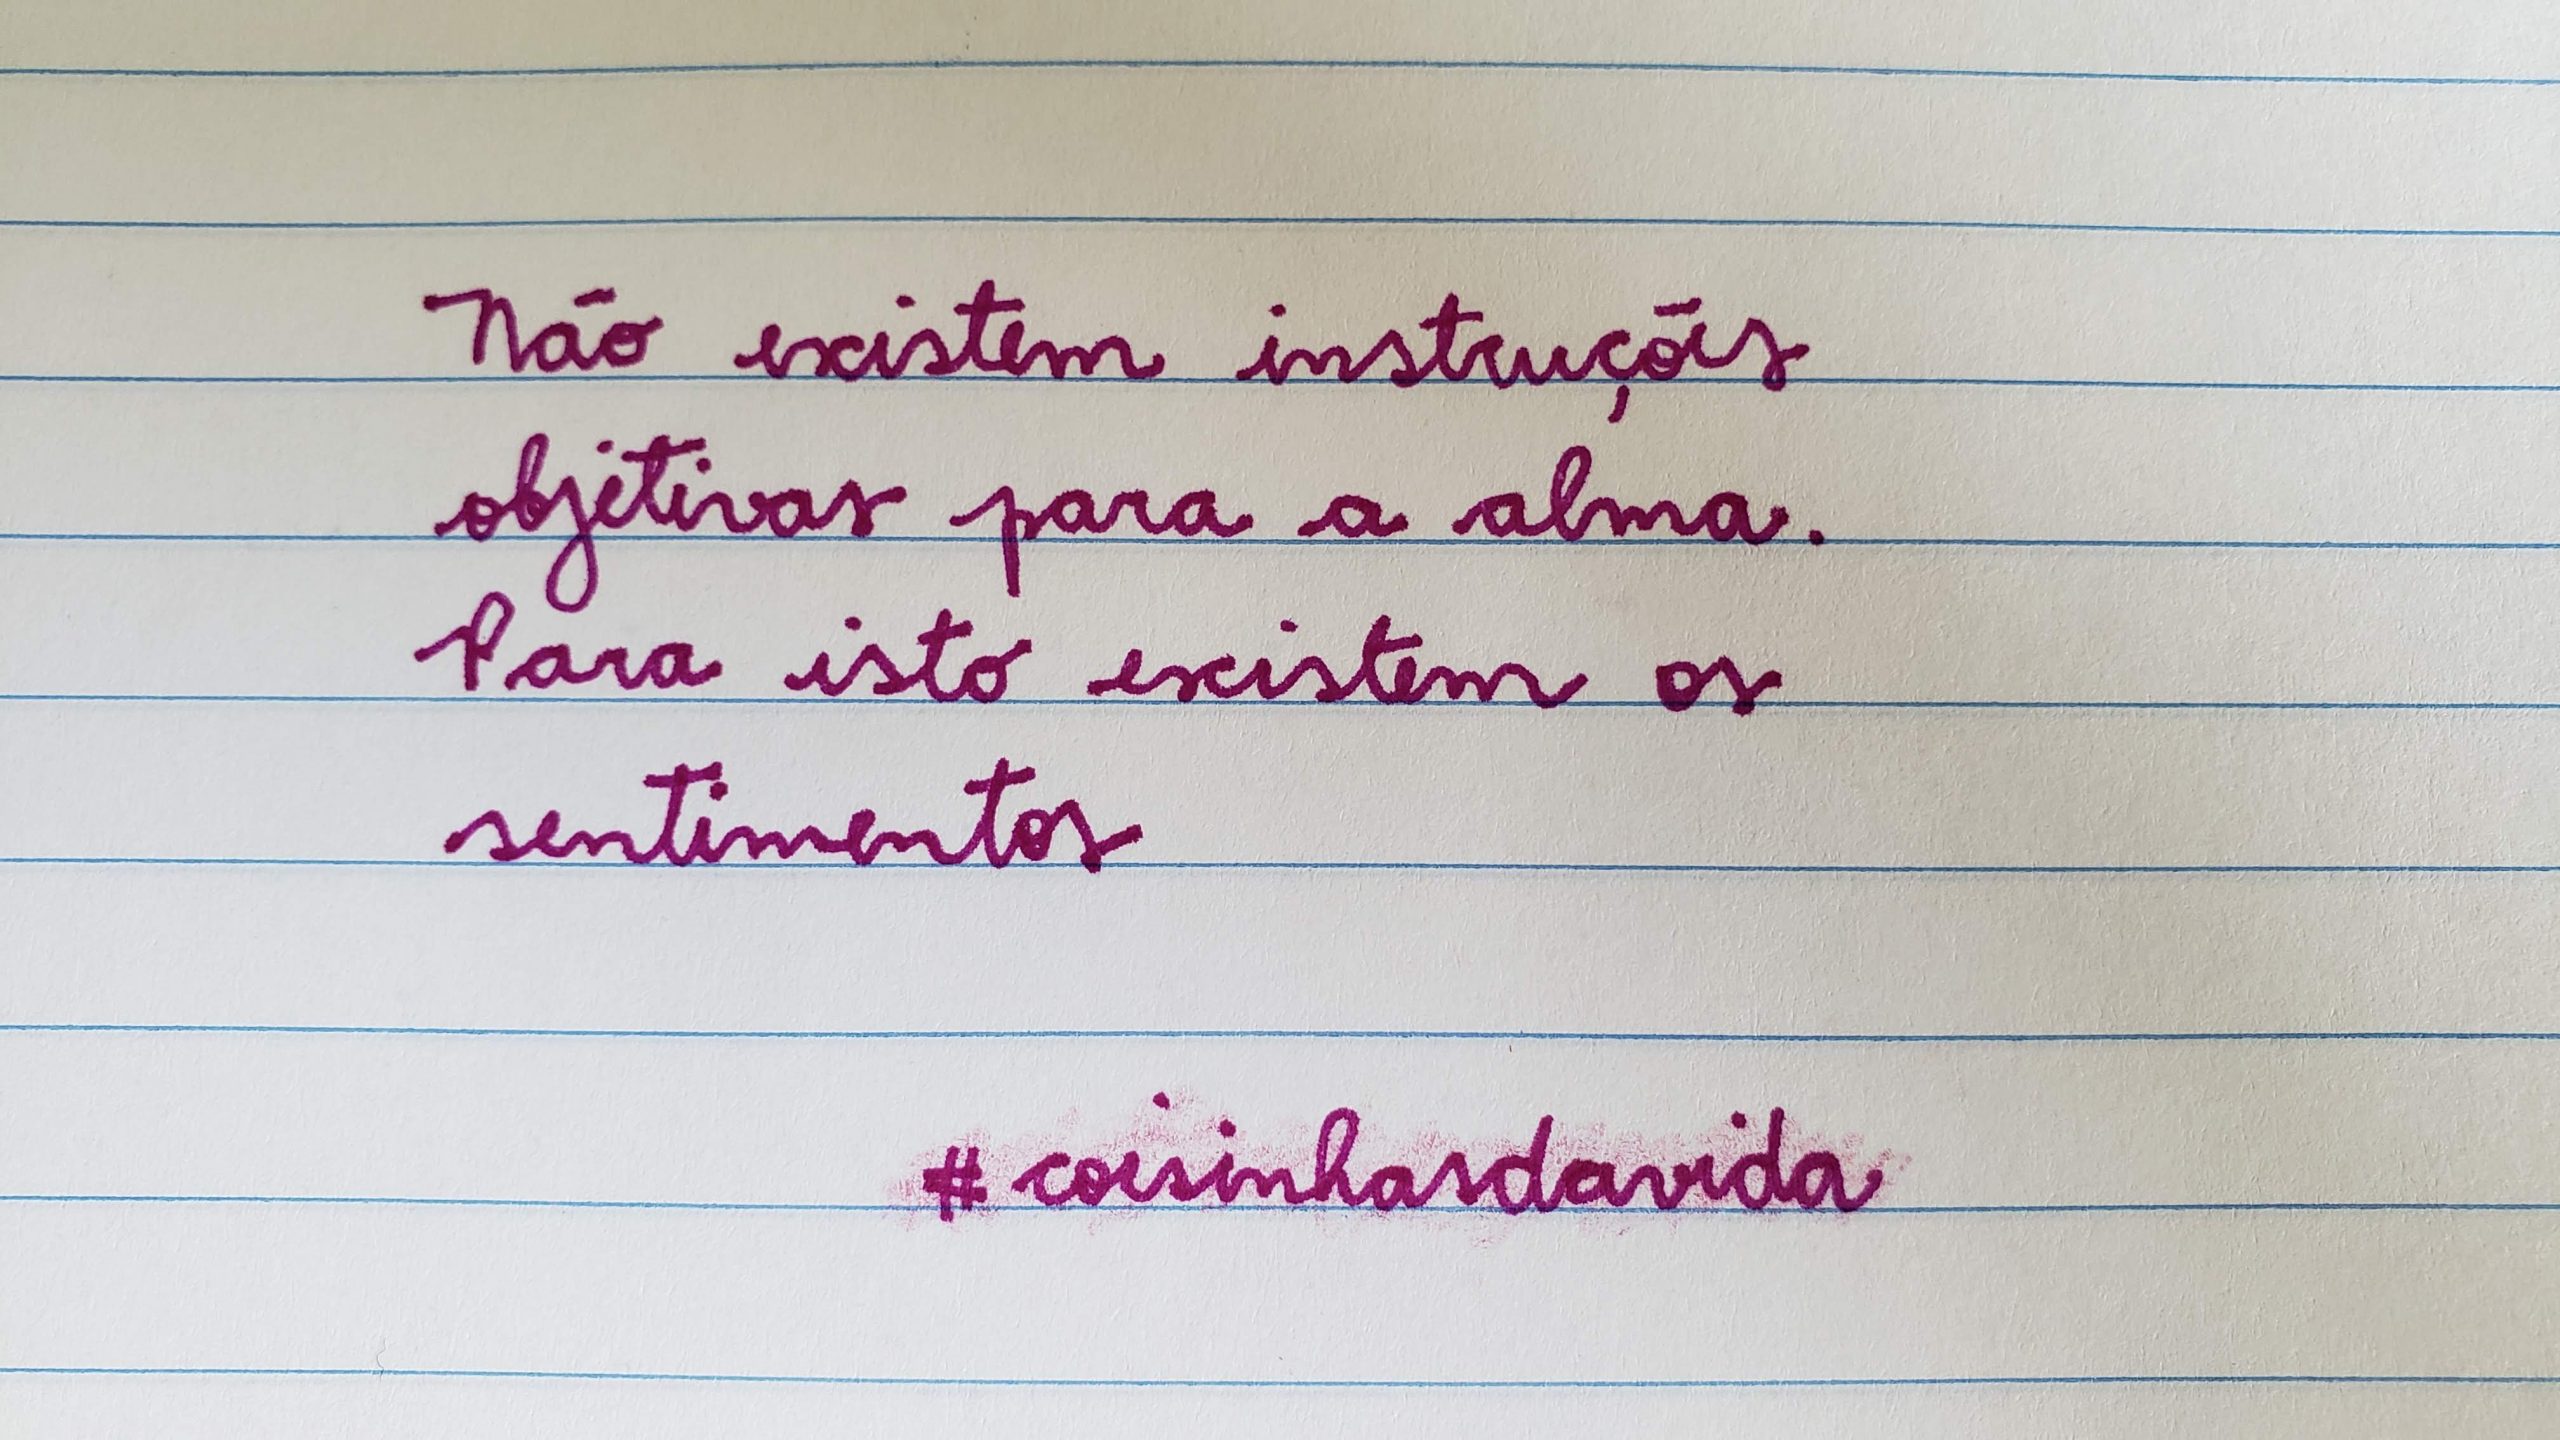 Não existem instruções
objetivas para a alma.
Para isto existem os
sentimentos
#coisinhasdavida